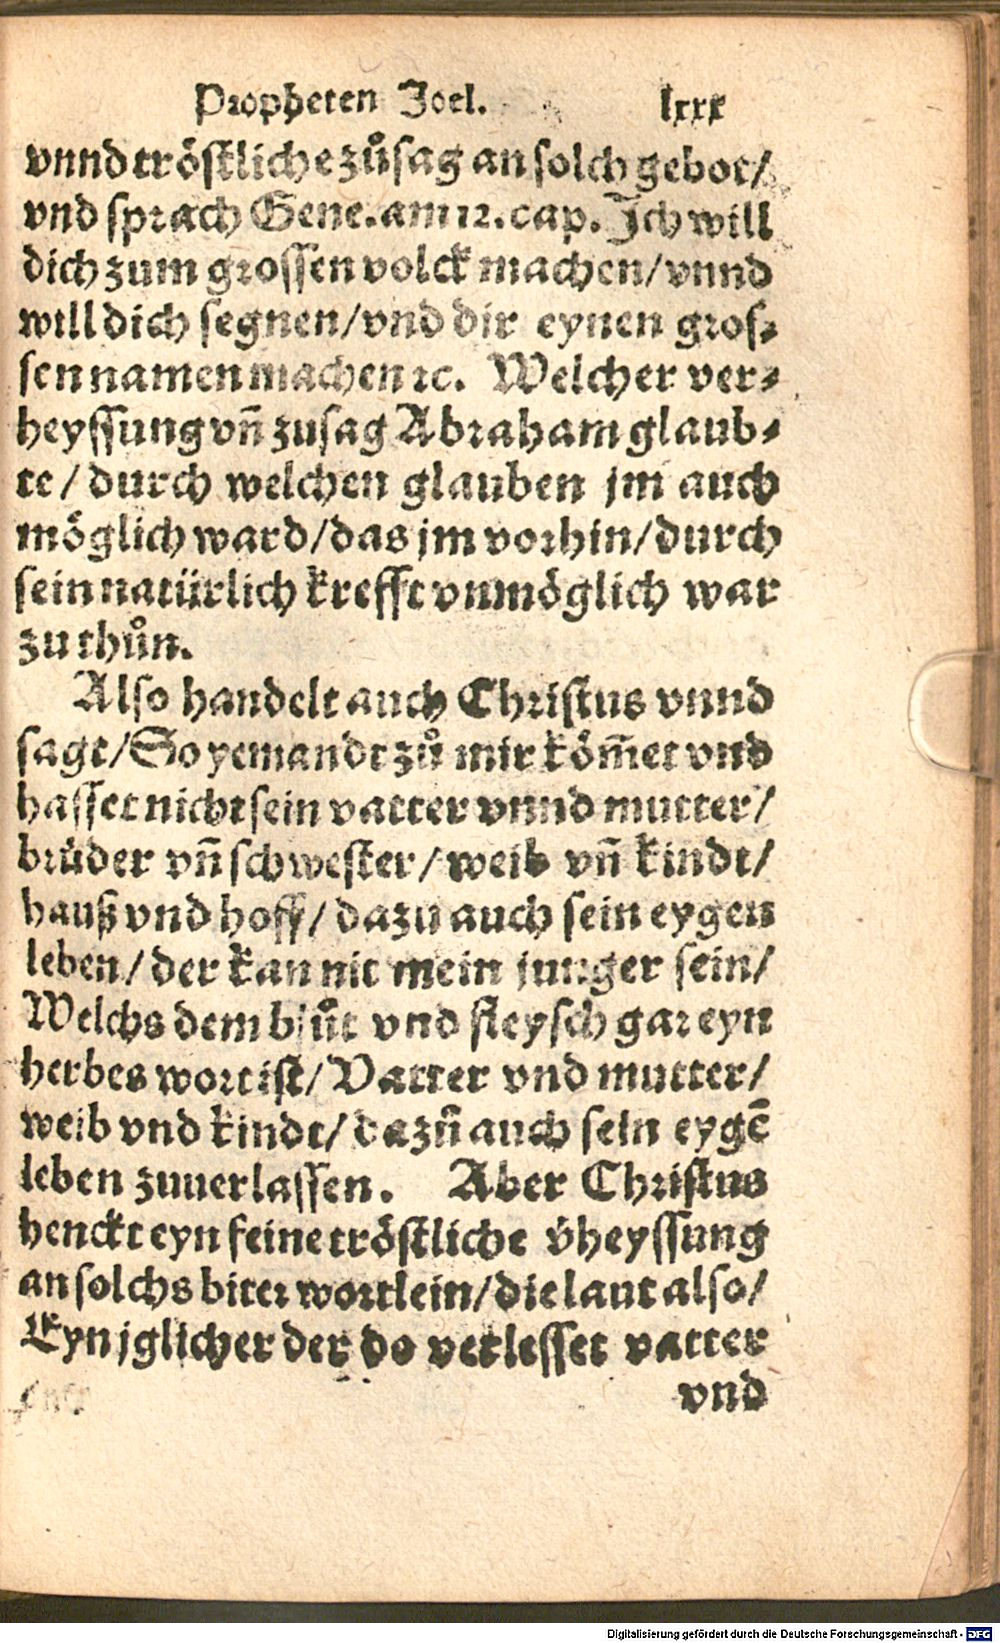 Propheten Joel. lxxx
vnnd tröstliche zůsag an solch gebot/
vnd sprach Gene. am 12. cap. Ich will
dich zum grossen volck machen/ vnnd
will dich segnen/ vnd dir eynen gros⸗
sen namen machen ꝛc. Welcher ver⸗
heyssung vñ zusag Abraham glaub⸗
te/ durch welchen glauben jm auch
möglich ward/ das jm vorhin/ durch
sein natürlich krefft vnmöglich war
zu thůn.
Also handelt auch Christus vnnd
sagt/ So yemandt zů mir köm̄et vnd
hasset nicht sein vatter vnnd mutter/
brüder vñ schwester/ weib vñ kindt/
hauß vnd hoff/ dazu auch sein eygen
leben/ der kan nit mein junger sein/
Welchs dem blůt vnd fleysch gar eyn
herbes wort ist/ Vatter vnd mutter/
weib vnd kindt/ dazů auch sein eygē
leben zuuerlassen. Aber Christus
henckt eyn feine tröstliche v̈heyssung
an solchs biter wortlein/ die laut also/
Eyn jglicher der do verlesset vatter
vnd
Digitalisierung gefördert durch die Deutsche Forschungsgemeinschaft - DFG